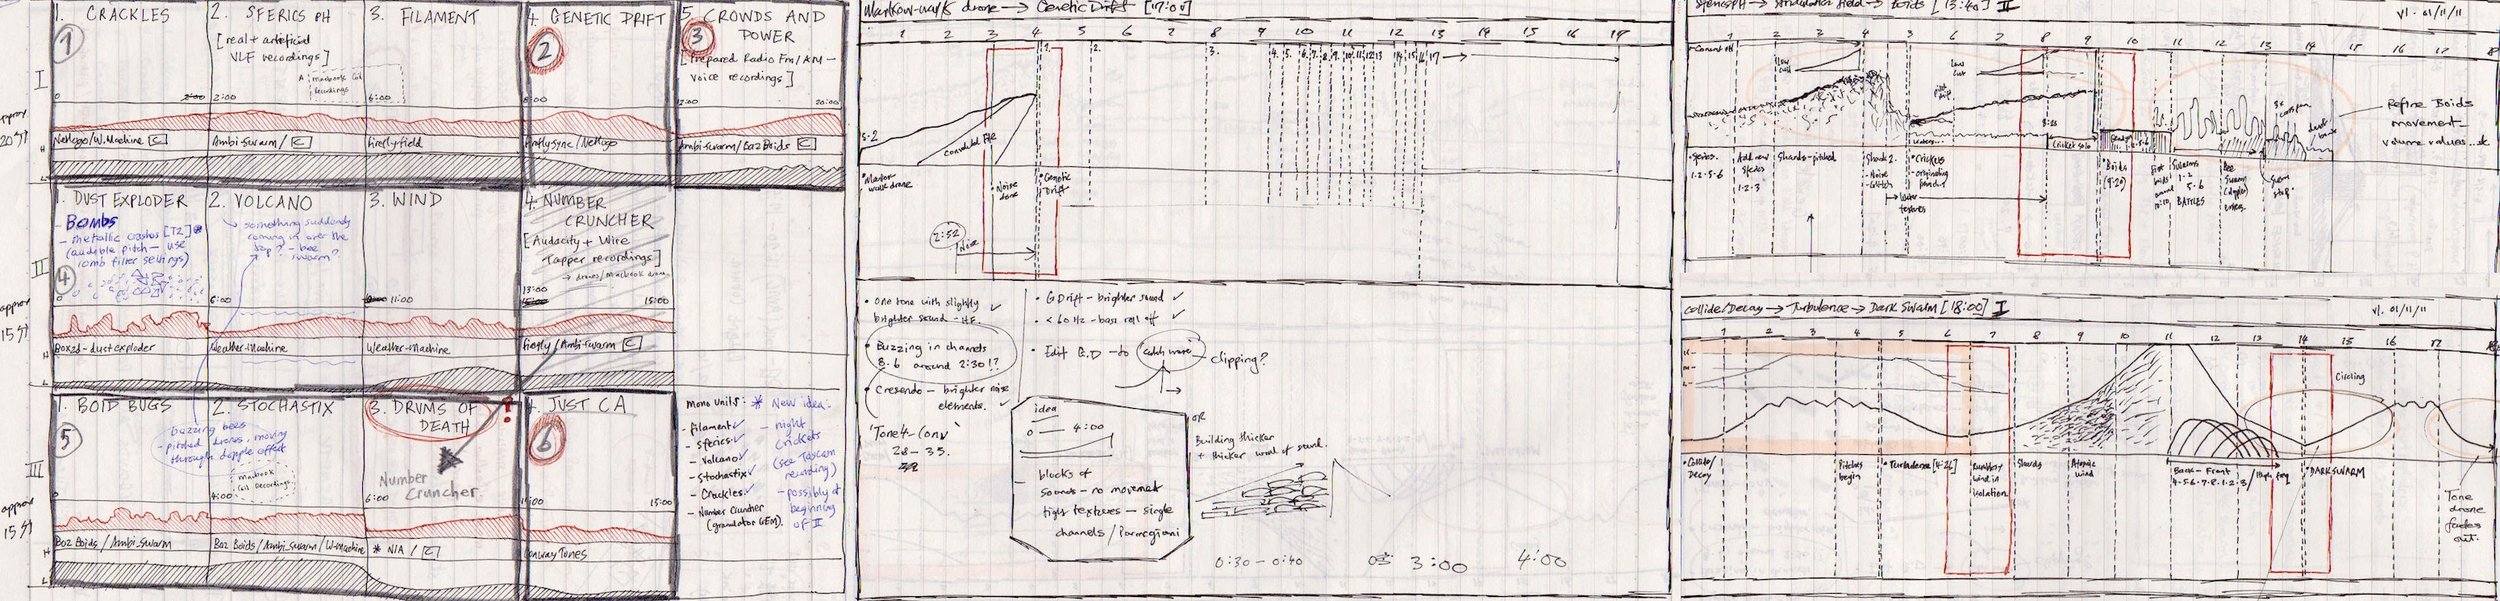 1. CRACKLES
2. SFERICS PH
[real + artificial
VLF recordings]
macbook coil
recordings
3. FILAMENT
4. GENETIC DRIFT
5. CROWDS AND
POWER
[Prepared Radio Fm/AM —
voice recordings]
1
2
3
I
0
2:00
6:00
8:00
12:00
20:00
approx
Netlogo/W.Machine [C]
Ambi-swarm / [C]
Firefly-field
Fireflysync/Netlogo
Ambi-swarm/Bo2Boids [C]
H
L
1. DUST EXPLODER
Bombs
- metallic crashes [T2]*
(audible pitch — use
comb filter settings)
2. VOLCANO
something suddenly
coming in over the
top? - bee
swarm?
3. WIND
4. NUMBER
CRUNCHER
[Audacity + Wire
Tapper recordings]
→ drones/macbook
II
4
0
6:00
11:00
13:00
15:00
15:00
approx
Box2d - dust exploder
Weather-Machine
Weather-Machine
Firefly/Ambi-swarm [C]
H
L
1. BOID BUGS
2. STOCHASTIX
3. DRUMS OF
DEATH
4. JUST CA
buzzing bees
- pitched drones, moving
through dopple effect
macbook
coil recordings
Number
Cruncher
5
6
III
0
4:00
6:00
15:00
approx
Bo2 Boids / Ambi_swarm
Bo2 Boids/Ambi_swarm/W-Machine
* N/A / [C]
Conway Tones
H
L
Mono Units:
- Filament ✓
- Sferics ✓
- Volcano ✓
- Stochastix ✓
- Crackles ✓
- Number Cruncher
(granulator GEM).
* New idea:
- night
crickets
(see Tascam
recording)
- possibly at
beginning
of II
Markow-walk drone → Genetic Drift [17:00]
1 2 3 4 5 6 7 8 9 10 11 12 13 14 15 16 17
1. 2. 3. 4. 5. 6. 7. 8. 9. 10. 11. 12 13 14 15 16 17 →
convoluted
• Markov
walk drone
• Noise
drone
• Genetic
Drift
2:52
Noise
• one tone with slightly ✓
brighter sound - HF.
• Buzzing in channels
8.6 around 2:30!?
• Cresendo — brighter noise
elements. ✓
'Tone4-Conv'
28 - 35.
• G Drift - brighter sound ✓
• < 60 Hz - bass roll off ✓
• Edit G.D — to
clipping?
idea
0 — 4:00
blocks of
sounds — no movement
tight textures — single
channels / Parmegiani
OR
Building thicker
+ thicker wall of sound.
0:30 - 0:40
3:00
4:00
SfericsPH → Stridulator field → Boids [13:40] II
v1. 01/11/11
1 2 3 4 5 6 7 8 9 10 11 12 13 14 15 16 17 18
low
cut
low
cut
pitch
shift
Cricket solo
• Sferics.
1·2·5·6
Add new
sferics
1·2·3
Shards-pitched
Shards 2.
- Noise
- Glitch
• Crickets
- originating
Water
textures
• Boids
(9:20)
Swarms
1·2
5·6
BATTLES
Bee
Swarm
Refine Boids
movement —
volume values...etc
Collide/Decay → Turbulence → Dark Swarm [18:00] I
v1. 01/11/11
1 2 3 4 5 6 7 8 9 10 11 12 13 14 15 16 17 18
• Collide/
Decay
Pitches
begin
• Turbulence [4:26]
wind in
isolation.
Shards
Atomic
wind
Back - Front
4·5·6·7·8·1·2·3
• DARKSWARM
Circling
Tone
drone
fades
out.